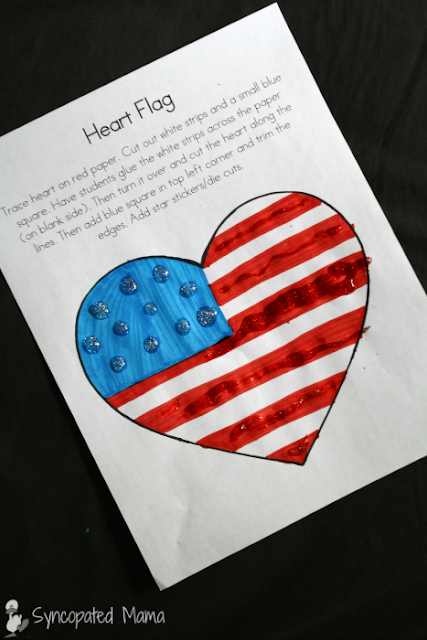 Heart Flag
Trace heart on red paper. Cut out white strips and a small blue
square. Have students glue the white strips across the paper
(on blank side). Then turn it over and cut the heart along the
lines. Then add blue square in top left corner and trim the
edges. Add star stickers/die cuts.
Syncopated Mama